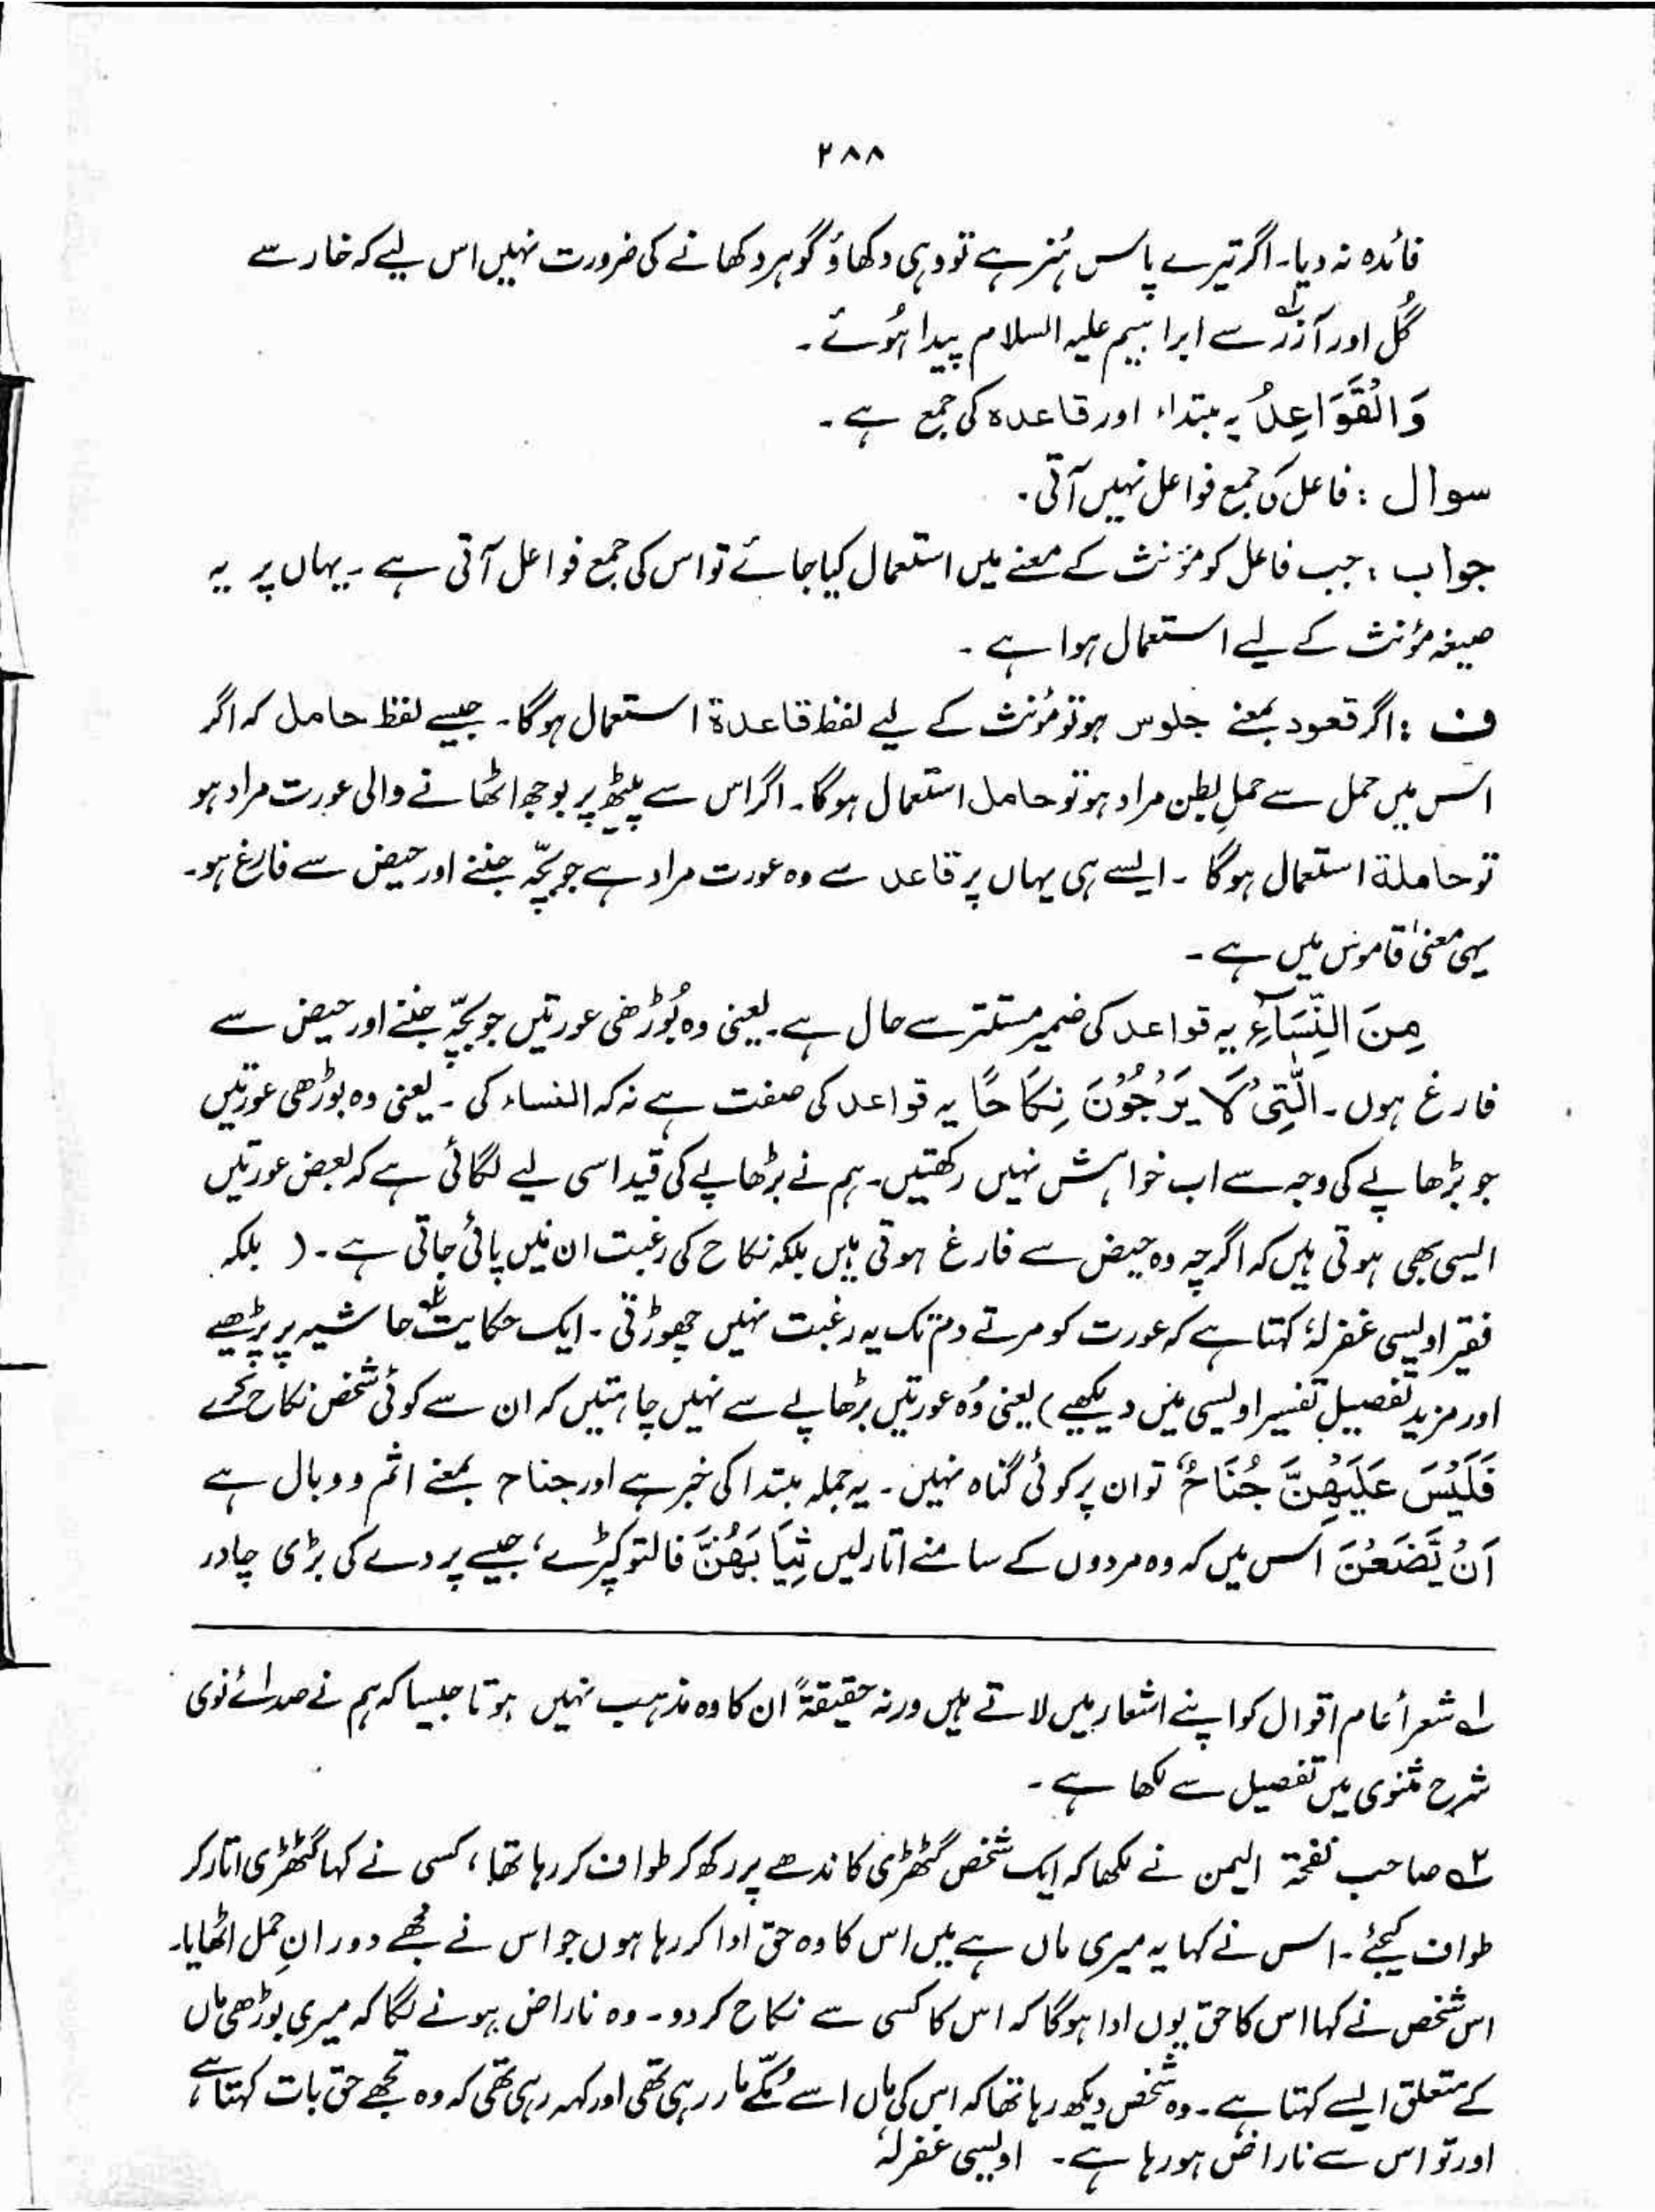 ۲۸۸
فائدہ نہ دیا۔ اگر تیرے پاس ہُنر ہے تو وہی دکھاؤ گوہر دکھانے کی ضرورت نہیں اس لیے کہ خار سے
گُل اور آزر لہ سے ابراہیم علیہ السلام پیدا ہُوئے۔
وَالْقَوَاعِدُ یہ مبتداء اور قاعدہ کی جمع ہے۔
سوال : فاعل کی جمع فواعل نہیں آتی۔
جواب : جب فاعل کو مؤنث کے معنے میں استعمال کیا جائے تو اس کی جمع فواعل آتی ہے۔ یہاں پر یہ
صیغہ مؤنث کے لیے استعمال ہوا ہے۔
ف : اگر قعود بمعنے جلوس ہو تو مؤنث کے لیے لفظ قاعدۃ استعمال ہوگا۔ جیسے لفظ حامل کہ اگر
اس میں حمل سے حملِ بطن مراد ہو تو حامل استعمال ہوگا۔ اگر اس سے پیٹھ پر بوجھ اٹھانے والی عورت مراد ہو
تو حاملۃ استعمال ہوگا۔ ایسے ہی یہاں پر قاعد سے وہ عورت مراد ہے جو بچّہ جننے اور حیض سے فارغ ہو۔
یہی معنیٰ قاموس میں ہے۔
مِنَ النِّسَآءِ یہ قواعد کی ضمیر مستتر سے حال ہے۔ یعنی وہ بُوڑھی عورتیں جو بچّہ جننے اور حیض سے
فارغ ہوں۔ الّٰتِیْ لَا یَرْجُوْنَ نِکَاحًا یہ قواعد کی صفت ہے نہ کہ النساء کی۔ یعنی وہ بوڑھی عورتیں
جو بڑھاپے کی وجہ سے اب خواہش نہیں رکھتیں۔ ہم نے بڑھاپے کی قید اسی لیے لگائی ہے کہ بعض عورتیں
ایسی بھی ہوتی ہیں کہ اگرچہ وہ حیض سے فارغ ہوتی ہیں بلکہ نکاح کی رغبت ان میں پائی جاتی ہے۔ ( بلکہ
فقیر اویسی غفرلہٗ کہتا ہے کہ عورت کو مرتے دم تک یہ رغبت نہیں چھوڑتی۔ ایک حکایت ۲ہ حاشیہ پر پڑھیے
اور مزید تفصیل تفسیر اویسی میں دیکھیے) یعنی وُہ عورتیں بڑھاپے سے نہیں چاہتیں کہ ان سے کوئی شخص نکاح کرے
فَلَیْسَ عَلَیْهِنَّ جُنَاحٌ تو ان پر کوئی گناہ نہیں۔ یہ جملہ مبتدا کی خبر ہے اور جناح بمعنے اثم و وبال ہے
اَنْ یَّضَعْنَ اس میں کہ وہ مردوں کے سامنے اتار لیں ثِیَابَهُنَّ فالتو کپڑے، جیسے پردے کی بڑی چادر
۱ہ شعرأ عام اقوال کو اپنے اشعار میں لاتے ہیں ورنہ حقیقۃً ان کا وہ مذہب نہیں ہوتا جیسا کہ ہم نے صدائے نوی
شرح مثنوی میں تفصیل سے لکھا ہے۔
۲ہ صاحب نفحۃ الیمن نے لکھا کہ ایک شخص گٹھڑی کاندھے پر رکھ کر طواف کر رہا تھا، کسی نے کہا گٹھڑی اتار کر
طواف کیجئے۔ اس نے کہا یہ میری ماں ہے میں اس کا وہ حق ادا کر رہا ہوں جو اس نے مجھے دورانِ حمل اٹھایا۔
اس شخص نے کہا اس کا حق یوں ادا ہوگا کہ اس کا کسی سے نکاح کر دو۔ وہ ناراض ہونے لگا کہ میری بوڑھی ماں
کے متعلق ایسے کہتا ہے۔ وہ شخص دیکھ رہا تھا کہ اس کی ماں اسے مُکّے مار رہی تھی اور کہہ رہی تھی کہ وہ تجھے حق بات کہتا ہے
اور تو اس سے ناراض ہو رہا ہے۔ اویسی غفرلہٗ